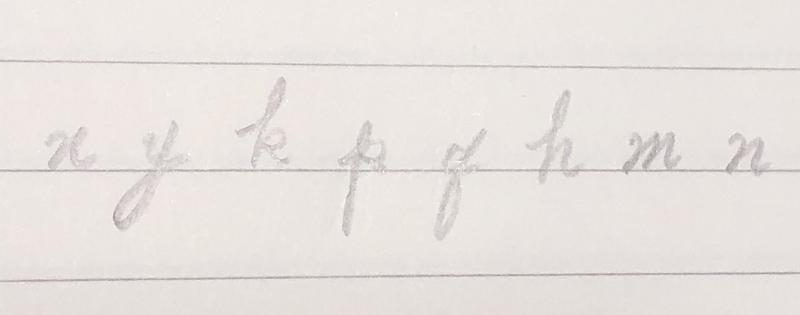 x y k p q h m n